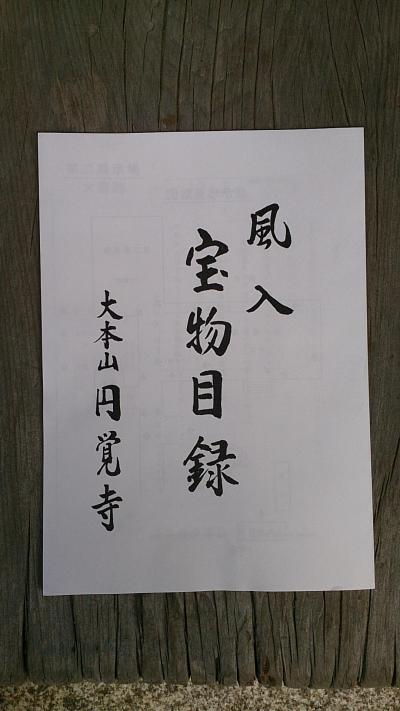 風入
宝物目録
大本山円覚寺